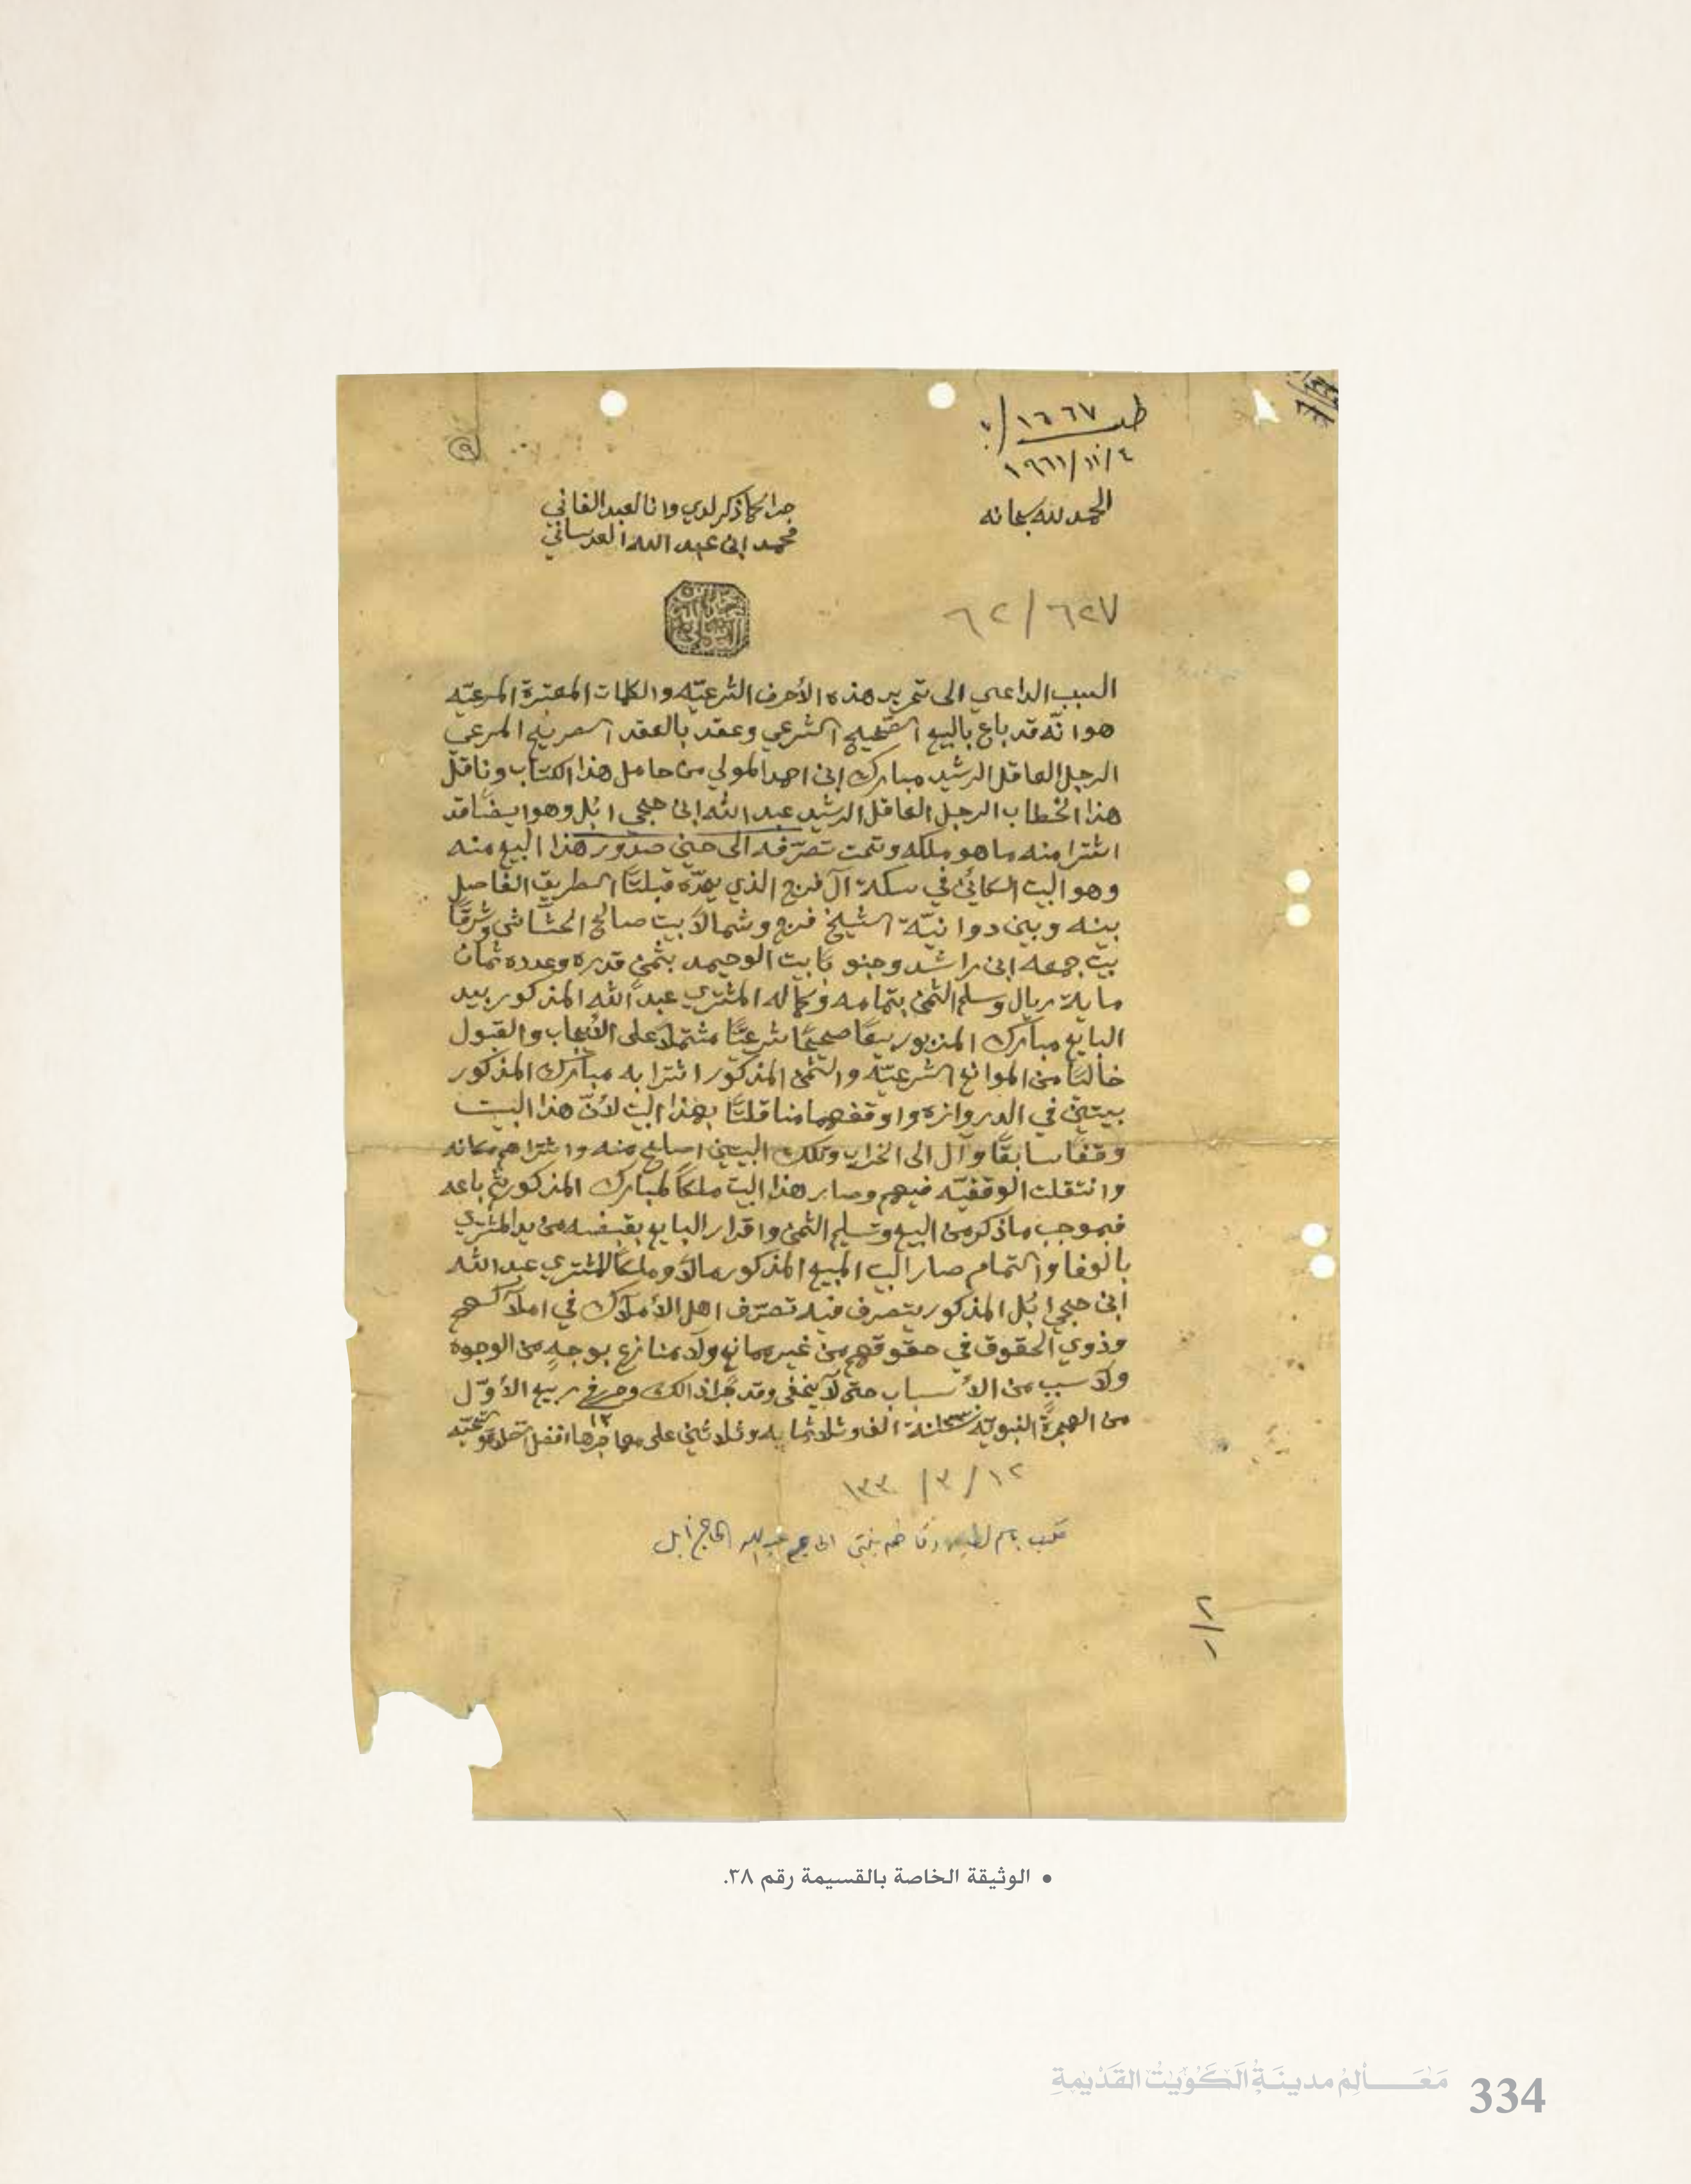 طب ١٦٦٧/
١٩٦١/١١/٤
الحمد لله سبحانه
جرا كما ذكر لدي وانا العبد الفاني
محمد ابن عبد الله العدساني
٩
٦٢/٦٢٧
السبب الداعي الى تحرير هذه الأحرف الشرعيّه والكلمات المعتبرة المرعيّه
هو انّه قد باع بالبيع الصّحيح الشرعي وعقد بالعقد الصريح المرعي
الرجل العاقل الرشيد مبارك ابن احمد المولي من حامل هذا الكتاب وناقل
هذا الخطاب الرجل العاقل الرشيد عبد الله ابن حجي ابُل وهو ايضًا قد
اشترا منه ما هو ملكه وتحت تصرّفه الى حين صدور هذا البيع منه
وهو البيت الكائن في سكة آل فرج الذي يحدّه قبلتًا الطريق الفاصل
بينه وبين دوانيّة الشيخ فرج وشمالاً بيت صالح الحشّاش وشرقًا
بيت جمعه ابن راشد وجنوبًا بيت الوحيمد بثمنٍ قدره وعدده ثمان
ماية ريال وسلم الثمن بتمامه وكماله المشتري عبد الله المذكور بيد
البايع مبارك المزبور بيعًا صحيحًا شرعيًّا مشتملاً على الأيجاب والقبول
خاليًا من الموانع الشرعيّه والثمن المذكور اشترا به مبارك المذكور
بيتين في الدروازه واوقفهما مناقلتًا بهذا البيت لأنّ هذا البيت
وقفًا سابقًا وآل الى الخراب وتلك البيتين اصلح منه واشتراهم مكانه
وانتقلت الوقفيّه فيهم وصار هذا البيت ملكًا لمبارك المذكور ثم باعه
فبموجب ما ذكر من البيع وتسليم الثمن واقرار البايع بقبضه من يد المشتري
بالوفا والتمام صار البيت المبيع المذكور مالاً وملكًا للمشتري عبد الله
ابن حجي ابُل المذكور يتصرف فيه تصرّف اهل الأملاك في املاكهم
وذوي الحقوق في حقوقهم من غير ممانع ولا منازع بوجهٍ من الوجوه
ولا سببٍ من الأسباب حتى لا يخفى وقد جرا ذالك وحرر في ١٢ ربيع الأوّل
من الهجرة النبويّة سنة ١٣٣٠ الف وثلاثماية وثلاثين على مهاجرها افضل الصلاة والتحيّه
١٢/ ٣/ ١٣٣٠
طلب باسم وفاطمه بنتي الحاج عبد الله الحاج أبل
٢/١
• الوثيقة الخاصة بالقسيمة رقم ٣٨.
مَعَالِمُ مدينَةُ الكُوَيْتْ القَدْيمةِ 334